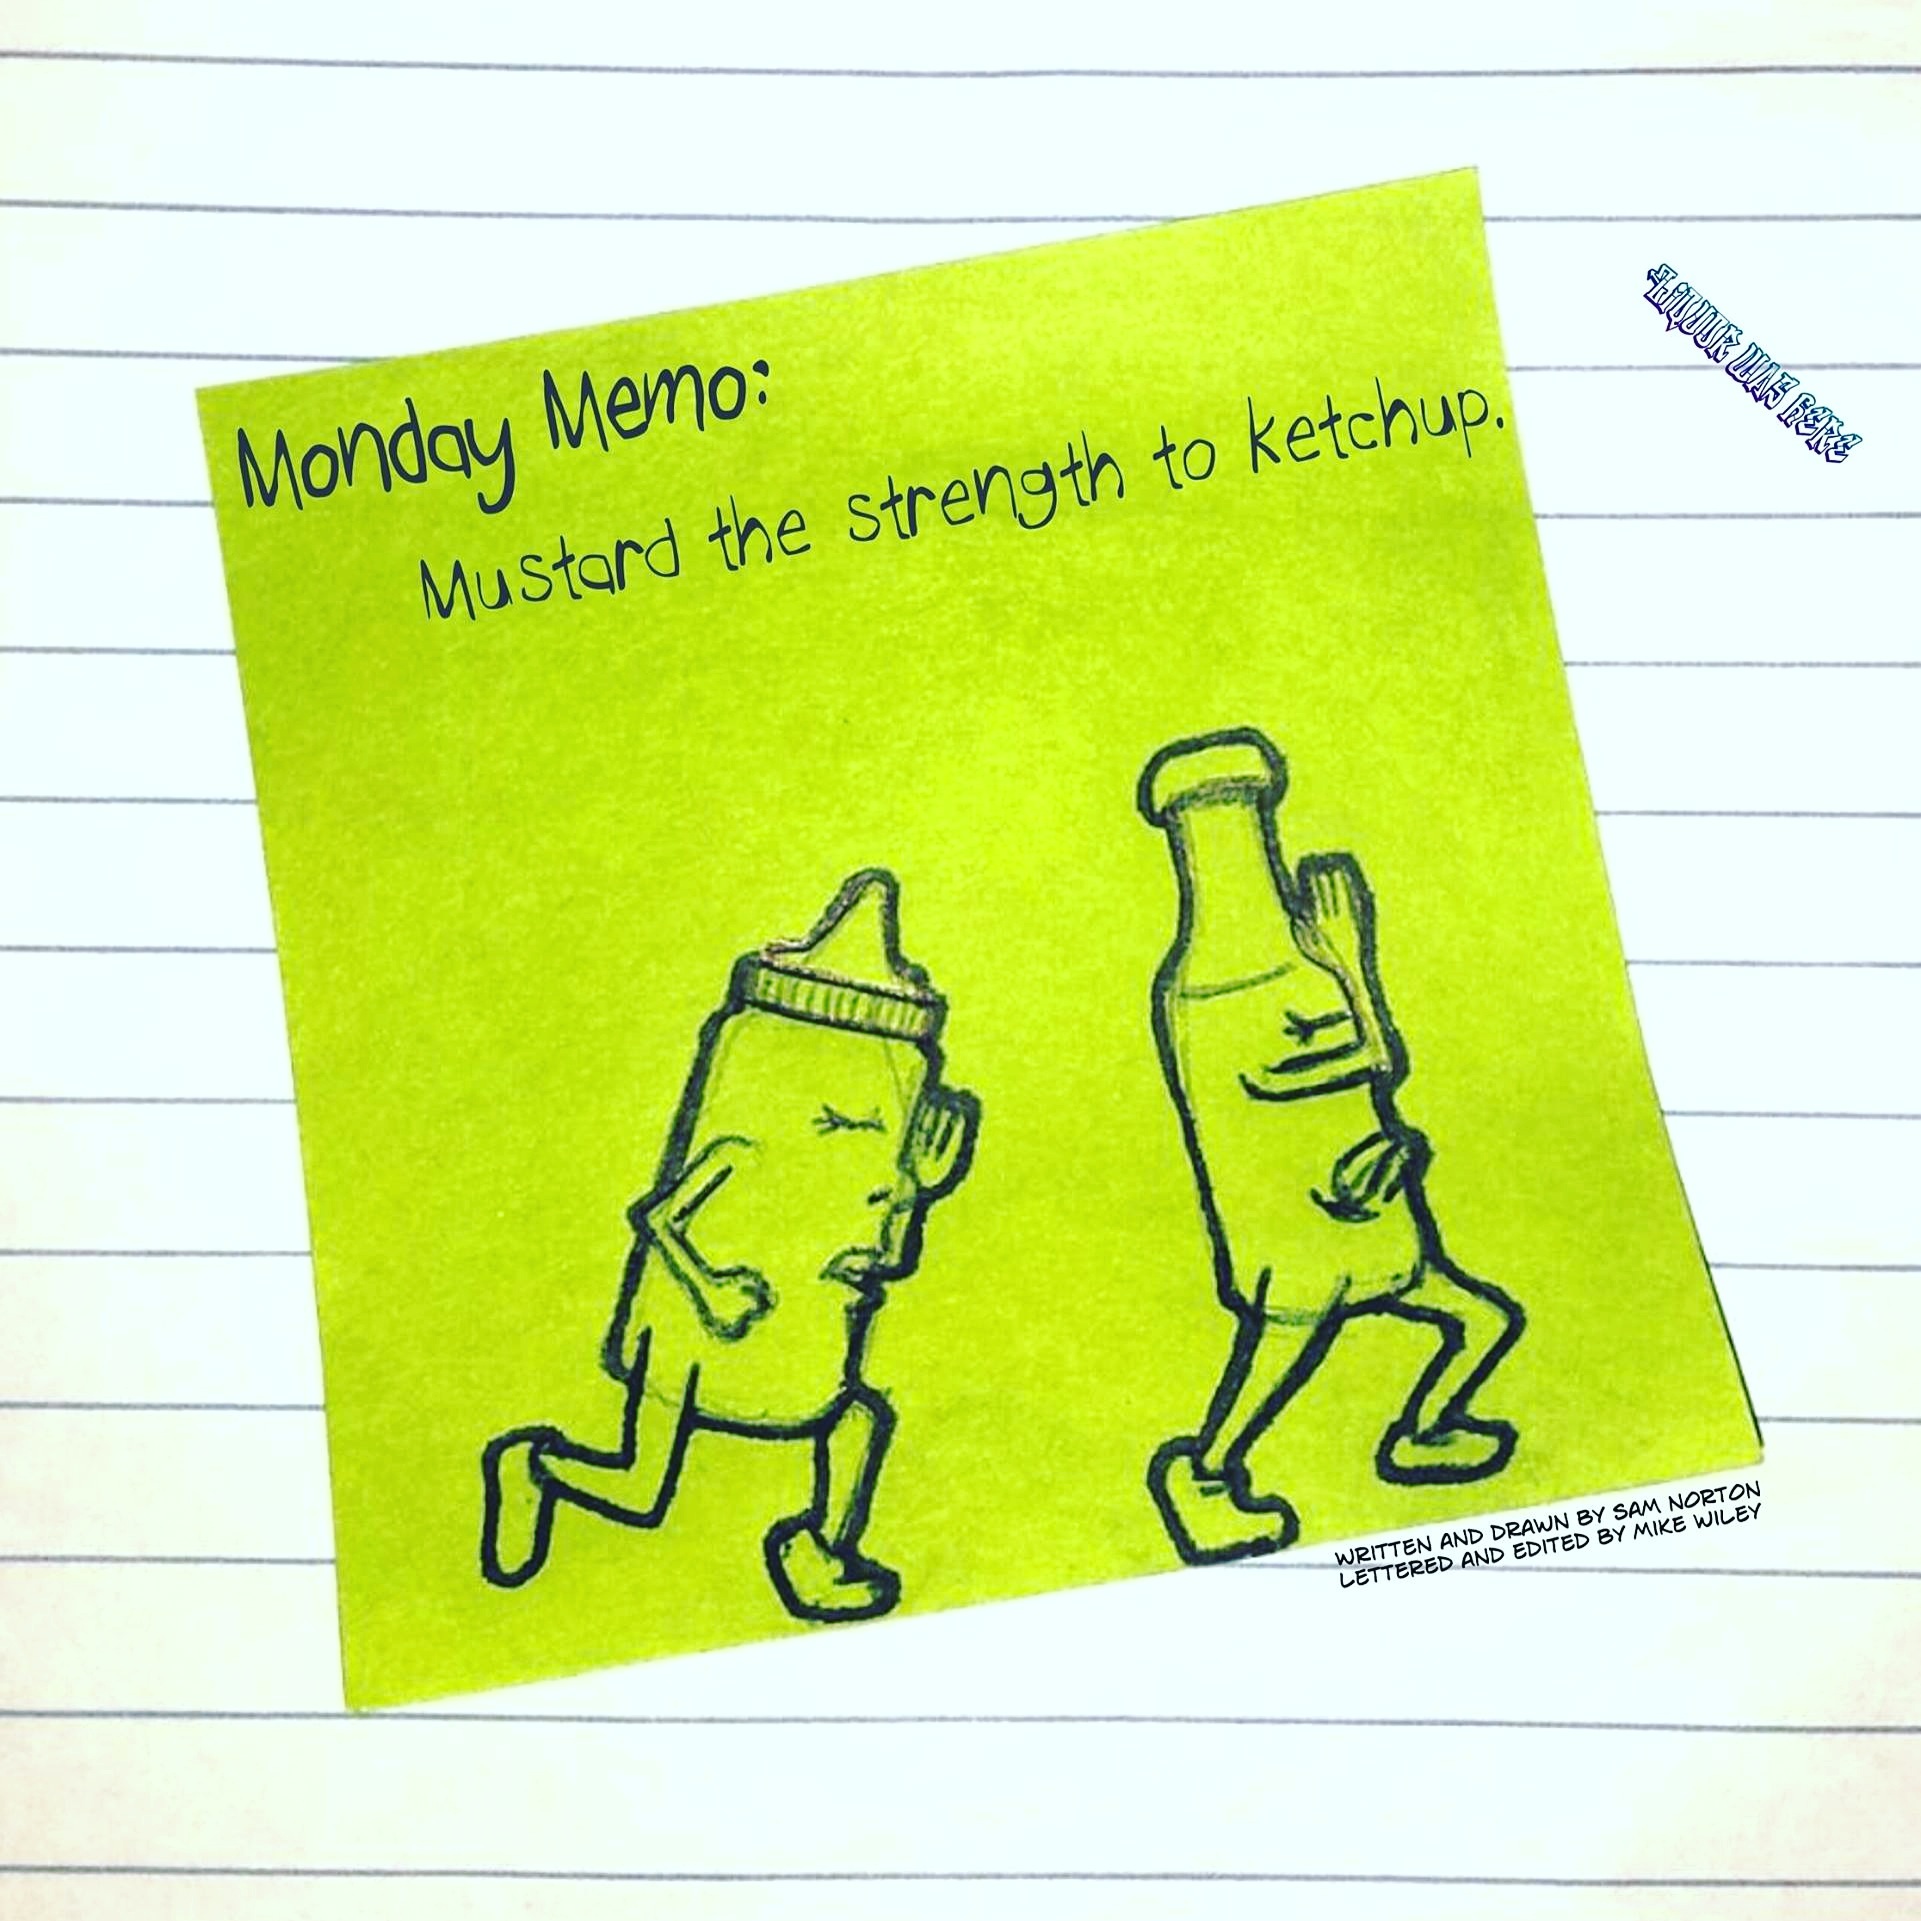 Monday Memo:
Mustard the strength to ketchup.
WAS HERE
WRITTEN AND DRAWN BY SAM NORTON
LETTERED AND EDITED BY MIKE WILEY